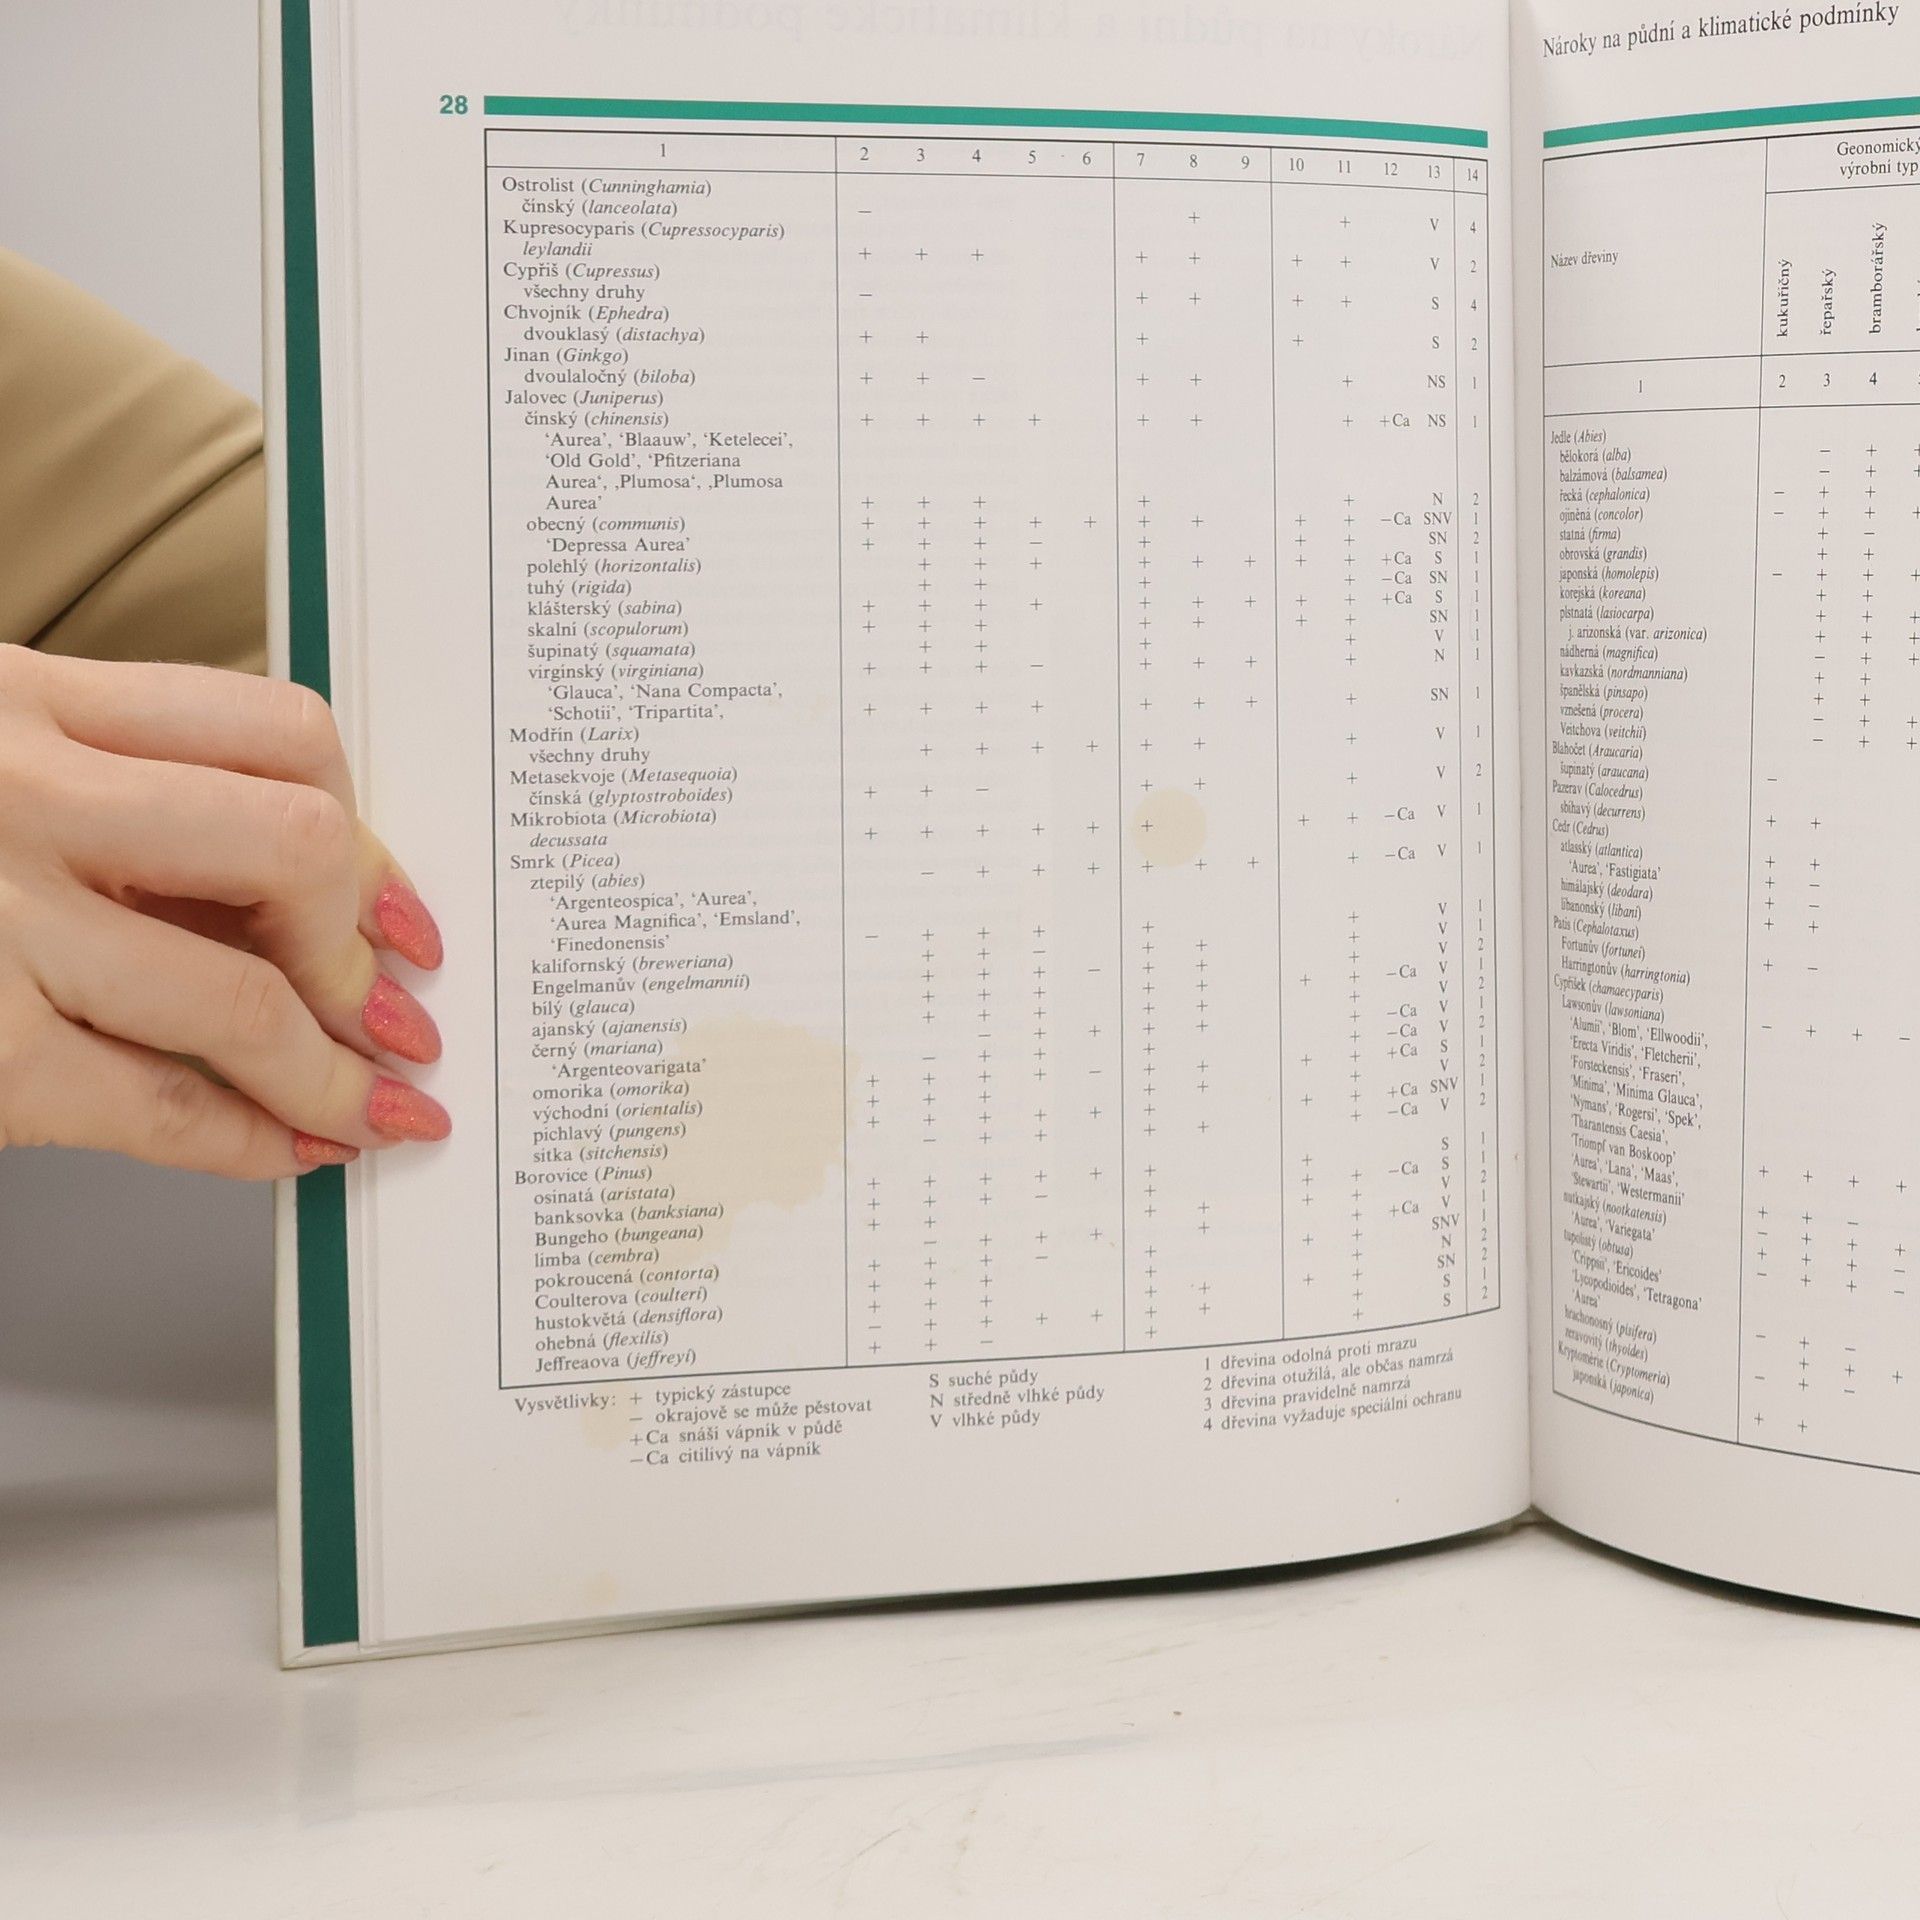 28
1 2 3 4 5 6 7 8 9 10 11 12 13 14
Ostrolist (Cunninghamia)
čínský (lanceolata) − + + V 4
Kupresocyparis (Cupressocyparis)
leylandii + + + + + + + V 2
Cypřiš (Cupressus)
všechny druhy − + + + + S 4
Chvojník (Ephedra)
dvouklasý (distachya) + + + + S 2
Jinan (Ginkgo)
dvoulaločný (biloba) + + − + + + NS 1
Jalovec (Juniperus)
čínský (chinensis) + + + + + + + +Ca NS 1
‘Aurea’, ‘Blaauw’, ‘Ketelecei’,
‘Old Gold’, ‘Pfitzeriana
Aurea‘, ‚Plumosa‘, ‚Plumosa
Aurea’ + + + + + N 2
obecný (communis) + + + + + + + + + −Ca SNV 1
‘Depressa Aurea’ + + + − + + + SN 2
polehlý (horizontalis) + + + + + + + + +Ca S 1
tuhý (rigida) + + + + −Ca SN 1
klášterský (sabina) + + + + + + + + + +Ca S 1
skalní (scopulorum) + + + + + + + SN 1
šupinatý (squamata) + + + + V 1
virgínský (virginiana) + + + − + + + + N 1
‘Glauca’, ‘Nana Compacta’,
‘Schotii’, ‘Tripartita’, + + + + + + + + SN 1
Modřín (Larix)
všechny druhy + + + + + + + V 1
Metasekvoje (Metasequoia)
čínská (glyptostroboides) + + − + + + V 2
Mikrobiota (Microbiota)
decussata + + + + + + + + −Ca V 1
Smrk (Picea)
ztepilý (abies) − + + + + + + + −Ca V 1
‘Argenteospica’, ‘Aurea’,
‘Aurea Magnifica’, ‘Emsland’,
‘Finedonensis’
kalifornský (breweriana)
Engelmanův (engelmannii)
bílý (glauca)
ajanský (ajanensis)
černý (mariana)
‘Argenteovarigata’
omorika (omorika)
východní (orientalis)
pichlavý (pungens)
sitka (sitchensis)
Borovice (Pinus)
osinatá (aristata)
banksovka (banksiana)
Bungeho (bungeana)
limba (cembra)
pokroucená (contorta)
Coulterova (coulteri)
hustokvětá (densiflora)
ohebná (flexilis)
Jeffreaova (jeffreyi)
Vysvětlivky: + typický zástupce
− okrajově se může pěstovat
+Ca snáší vápník v půdě
−Ca citilivý na vápník
S suché půdy
N středně vlhké půdy
V vlhké půdy
1 dřevina odolná proti mrazu
2 dřevina otužilá, ale občas namrzá
3 dřevina pravidelně namrzá
4 dřevina vyžaduje speciální ochranu
Nároky na půdní a klimatické podmínky
Název dřeviny
Geonomický
výrobní typ
kukuřičný
řepařský
bramborářský
1 2 3 4
Jedle (Abies)
bělokorá (alba) − +
balzámová (balsamea) − +
řecká (cephalonica) − + +
ojíněná (concolor) − + +
statná (firma) + −
obrovská (grandis) + +
japonská (homolepis) − + +
korejská (koreana) + +
plstnatá (lasiocarpa) + +
j. arizonská (var. arizonica) + +
nádherná (magnifica) − +
kavkazská (nordmanniana) + +
španělská (pinsapo) + +
vznešená (procera) − +
Veitchova (veitchii) − +
Blahočet (Araucaria)
šupinatý (araucana) −
Pazerav (Calocedrus)
sbíhavý (decurrens) + +
Cedr (Cedrus)
atlasský (atlantica) + +
‘Aurea’, ‘Fastigiata’ + −
himálajský (deodara) + −
libanonský (libani) + +
Patis (Cephalotaxus)
Fortunův (fortunei) + −
Harringtonův (harringtonia)
Cypřišek (chamaecyparis)
Lawsonův (lawsoniana) − + + −
‘Alumii’, ‘Blom’, ‘Ellwoodii’,
‘Erecta Viridis’, ‘Fletcherii’,
‘Forsteckensis’, ‘Fraseri’,
‘Minima’, ‘Minima Glauca’,
‘Nymans’, ‘Rogersi’, ‘Spek’,
‘Tharantensis Caesia’,
‘Triompf van Boskoop’
‘Aurea’, ‘Lana’, ‘Maas’,
‘Stewartii’, ‘Westermanii’
nutkajský (nootkatensis)
‘Aurea’, ‘Variegata’
tupolistý (obtusa)
‘Crippsii’, ‘Ericoides’
‘Lycopodioides’, ‘Tetragona’
‘Aurea’
hrachonosný (pisifera)
zeravovitý (thyoides)
Kryptomérie (Cryptomeria)
japonská (japonica)